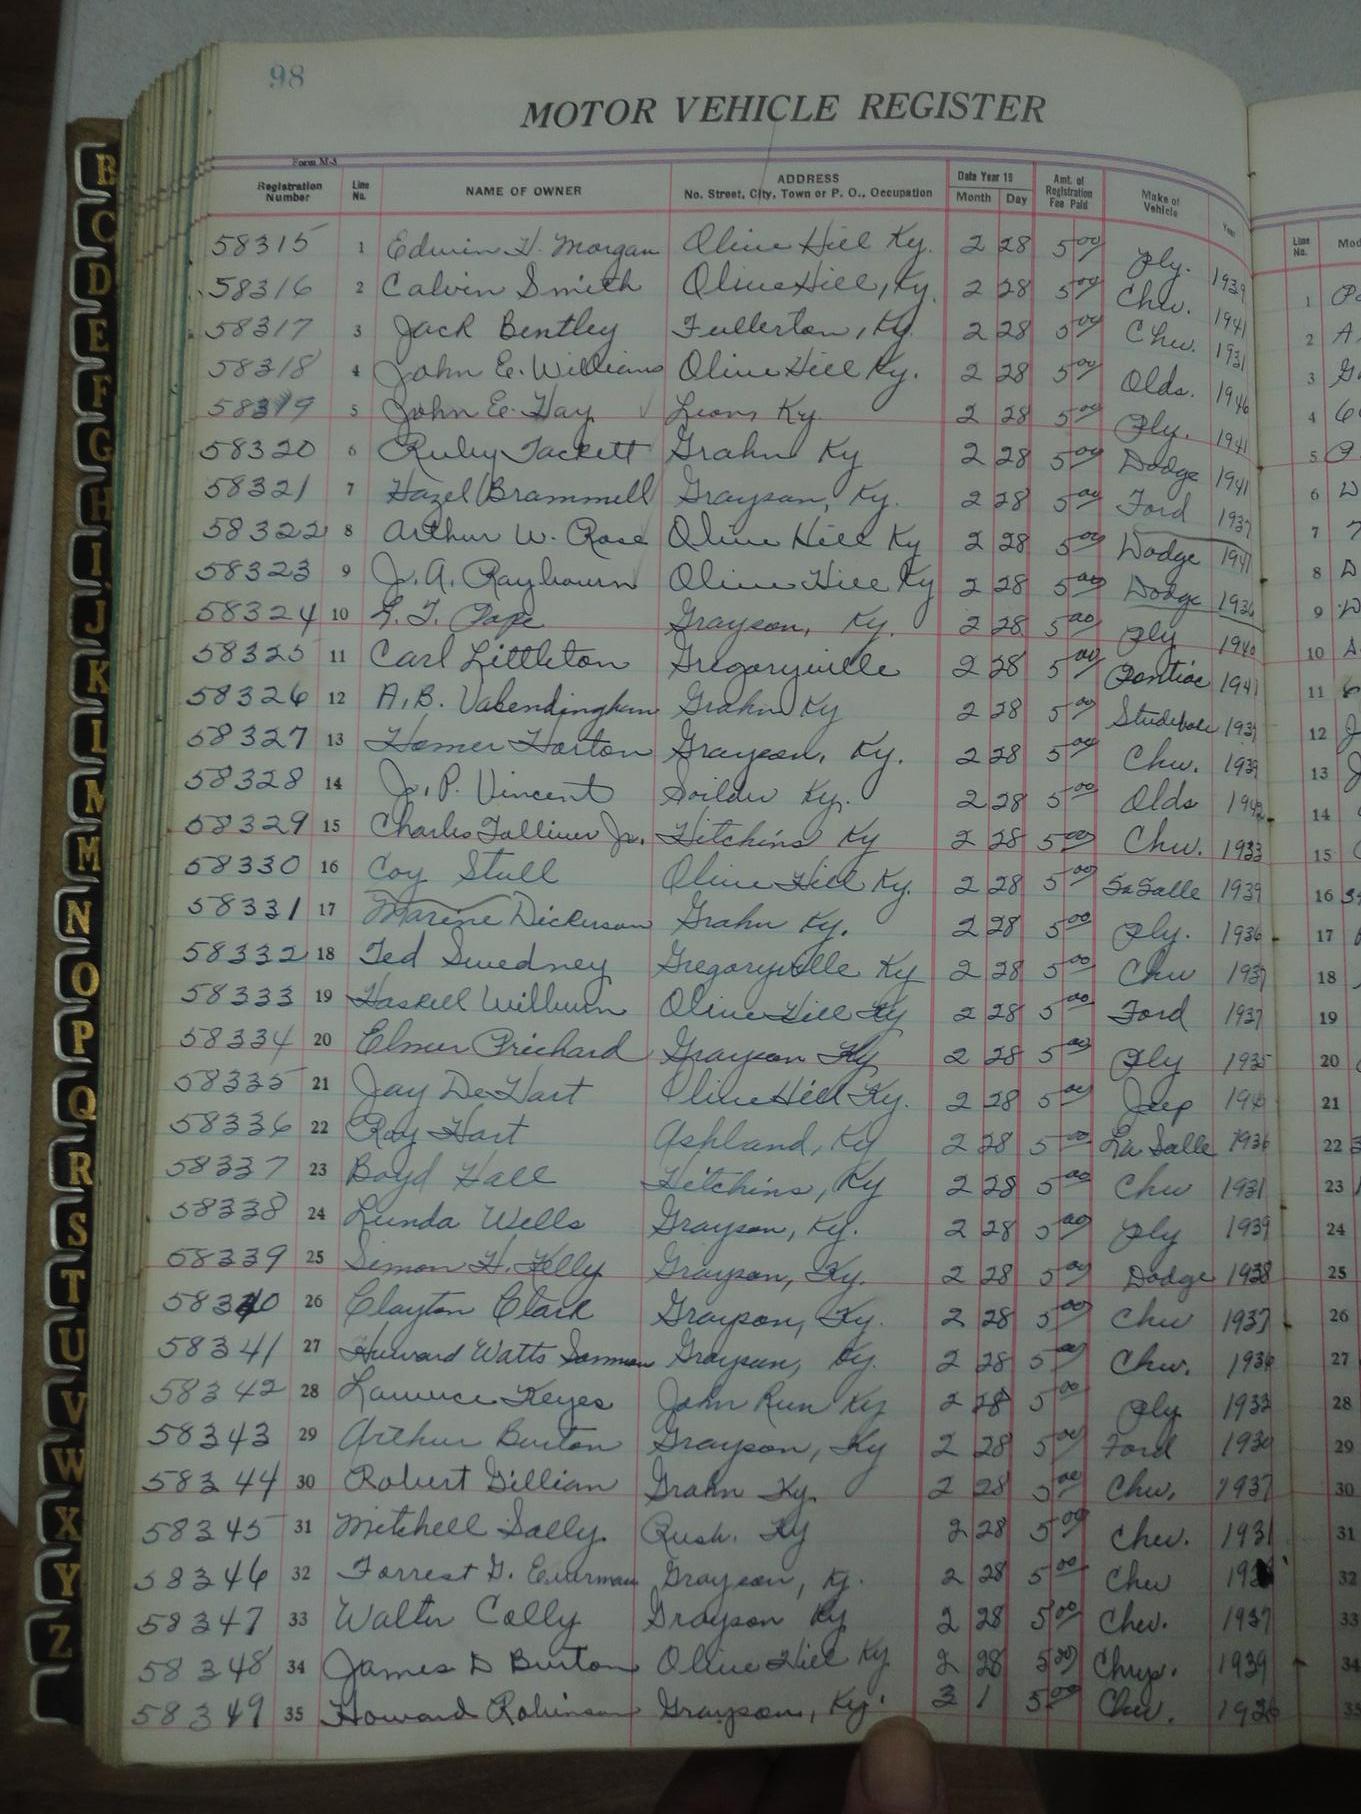 98
MOTOR VEHICLE REGISTER
Form M-3
Registration Number Line No. NAME OF OWNER ADDRESS No. Street, City, Town or P. O., Occupation Date Year 19 Month Day Amt. of Registration Fee Paid Make of Vehicle Year Line No.
58315 1 Edwin H. Morgan Olive Hill Ky. 2 28 5 00 Ply. 1939 1
58316 2 Calvin Smith Olive Hill, Ky. 2 28 5 00 Chev. 1941 2
58317 3 Jack Bentley Fullerton, Ky. 2 28 5 00 Chev. 1931 3
58318 4 John E. Williams Olive Hill Ky. 2 28 5 00 Olds. 1946 4
58319 5 John E. Hay Leon, Ky 2 28 5 00 Ply. 1941 5
58320 6 Ruby Tackett Grahn Ky 2 28 5 00 Dodge 1941 6
58321 7 Hazel Brammell Grayson, Ky. 2 28 5 00 Ford 1937 7
58322 8 Arthur W. Rose Olive Hill Ky 2 28 5 00 Dodge 1941 8
58323 9 J. A. Raybourn Olive Hill Ky 2 28 5 00 Dodge 1936 9
58324 10 Pope Grayson, Ky. 2 28 5 00 Ply 1940 10
58325 11 Carl Littleton Gregoryville 2 28 5 00 Pontiac 1941 11
58326 12 A. B. Grahn Ky 2 28 5 00 12
58327 13 Homer Horton Grayson, Ky. 2 28 5 00 Chev. 1939 13
58328 14 J. P. Vincent Ky. 2 28 5 00 Olds 14
58329 15 Charles Tolliver Jr. Hitchins Ky 2 28 5 00 Chev. 1933 15
58330 16 Coy Stull Olive Hill Ky. 2 28 5 00 La Salle 1939 16
58331 17 Dickerson Grahn Ky. 2 28 5 00 Ply. 1936 17
58332 18 Ted Swedney Gregoryville Ky 2 28 5 00 Chev 1937 18
58333 19 Haskell Wilburn Olive Hill Ky 2 28 5 00 Ford 1937 19
58334 20 Elmer Prichard Grayson Ky 2 28 5 00 Ply 1935 20
58335 21 Jay DeHart Olive Hill Ky. 2 28 5 00 Jeep 21
58336 22 Roy Hart Ashland, Ky 2 28 5 00 La Salle 1936 22
58337 23 Boyd Hall Hitchins, Ky 2 28 5 00 Chev 1931 23
58338 24 Lunda Wells Grayson, Ky. 2 28 5 00 Ply 1939 24
58339 25 Simon H. Kelly Grayson, Ky. 2 28 5 00 Dodge 1938 25
58340 26 Clayton Clark Grayson, Ky. 2 28 5 00 Chev 1937 26
58341 27 Howard Watts Grayson, Ky. 2 28 5 00 Chev. 1936 27
58342 28 Lawrence Keyes John Run Ky 2 28 5 00 Ply 1933 28
58343 29 Arthur Burton Grayson, Ky 2 28 5 00 Ford 1930 29
58344 30 Robert Gillian Grahn Ky. 2 28 5 00 Chev. 1937 30
58345 31 Mitchell Rush. Ky 2 28 5 00 Chev. 1931 31
58346 32 Forrest G. Grayson, Ky. 2 28 5 00 Chev 32
58347 33 Walter Colly Grayson Ky 2 28 5 00 Chev. 1937 33
58348 34 James D Burton Olive Hill Ky 2 28 5 00 Chrys. 1939 34
58349 35 Howard Robinson Grayson, Ky. 3 1 5 00 Chev. 1936 35
B
C
D
E
F
G
H
I
J
K
L
M
M
N
O
P
Q
R
S
T
U
V
W
X
Y
Z